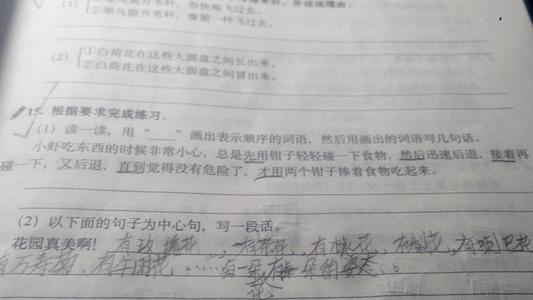 (1) ①翠鸟离开苇秆，很快地飞过去。
②翠鸟蹬开苇秆，像箭一样飞过去。
(2) ①白荷花在这些大圆盘之间长出来。
②白荷花在这些大圆盘之间冒出来。
15. 根据要求完成练习。
(1) 读一读，用“____”画出表示顺序的词语，然后用画出的词语写几句话。
小虾吃东西的时候非常小心，总是先用钳子轻轻碰一下食物，然后迅速后退，接着再
碰一下，又后退，直到觉得没有危险了，才用两个钳子捧着食物吃起来。
(2) 以下面的句子为中心句，写一段话。
花园真美啊！有玫瑰花、有荷花、有桃花、有 花、有喇叭花
有万寿菊、有牵牛花……每一朵 花